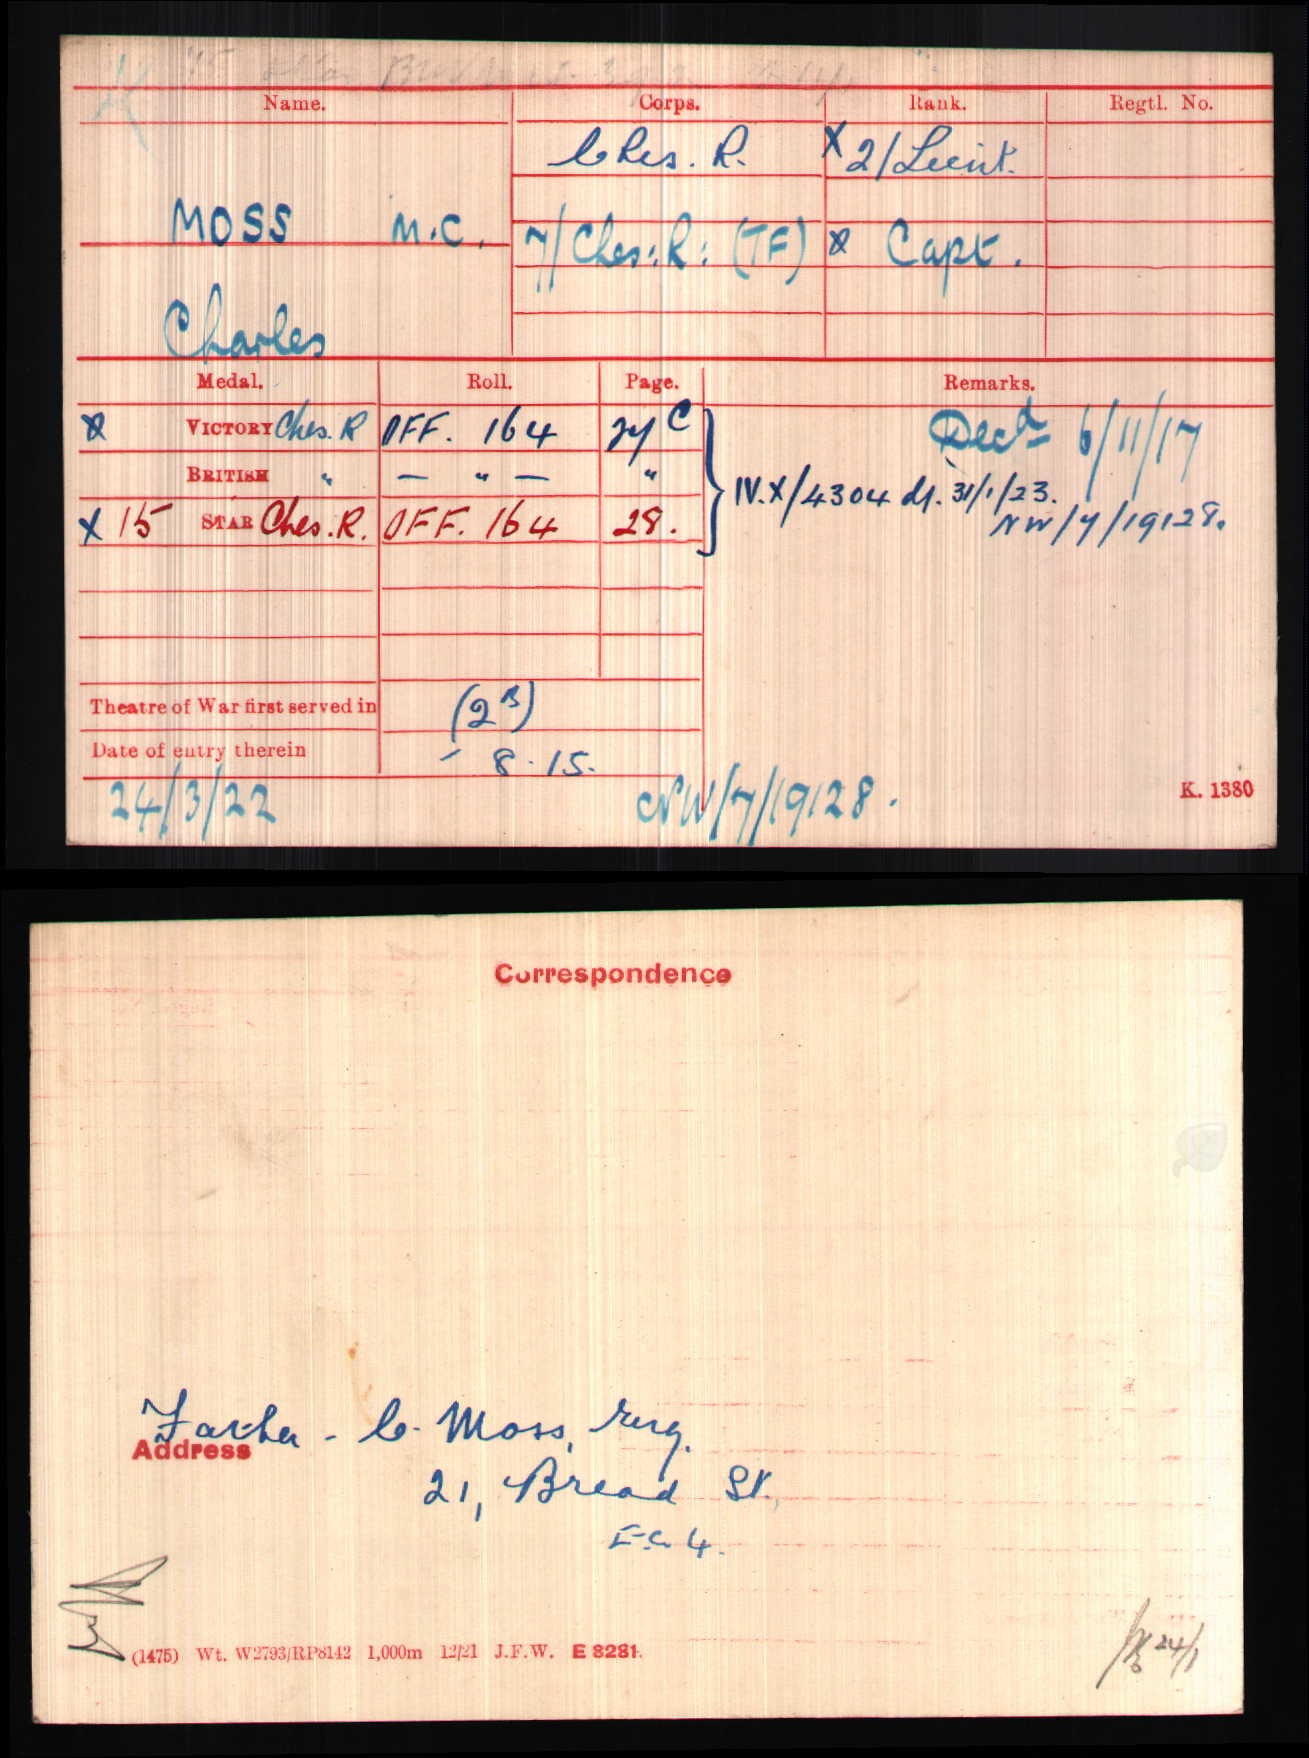 Name. Corps. Rank. Regtl. No.
Ches. R. X 2/Lieut.
MOSS M.C. 7/Ches: R: (TF) X Capt.
Charles
Medal. Roll. Page. Remarks.
X VICTORY Ches. R OFF. 164 C Decd 6/11/17
BRITISH " — " — " IV.X/4304 dt. 31/1/23.
X 15 STAR Ches. R. OFF. 164 28. NW/7/19128.
Theatre of War first served in (2B)
Date of entry therein - 8.15.
24/3/22 NW/7/19128. K. 1380
Correspondence
Father - C. Moss, Esq.
Address
21, Bread St.,
E.C. 4.
(1475) Wt. W2793/RP8142 1,000m 12/21 J.F.W. E 8281.
24/1